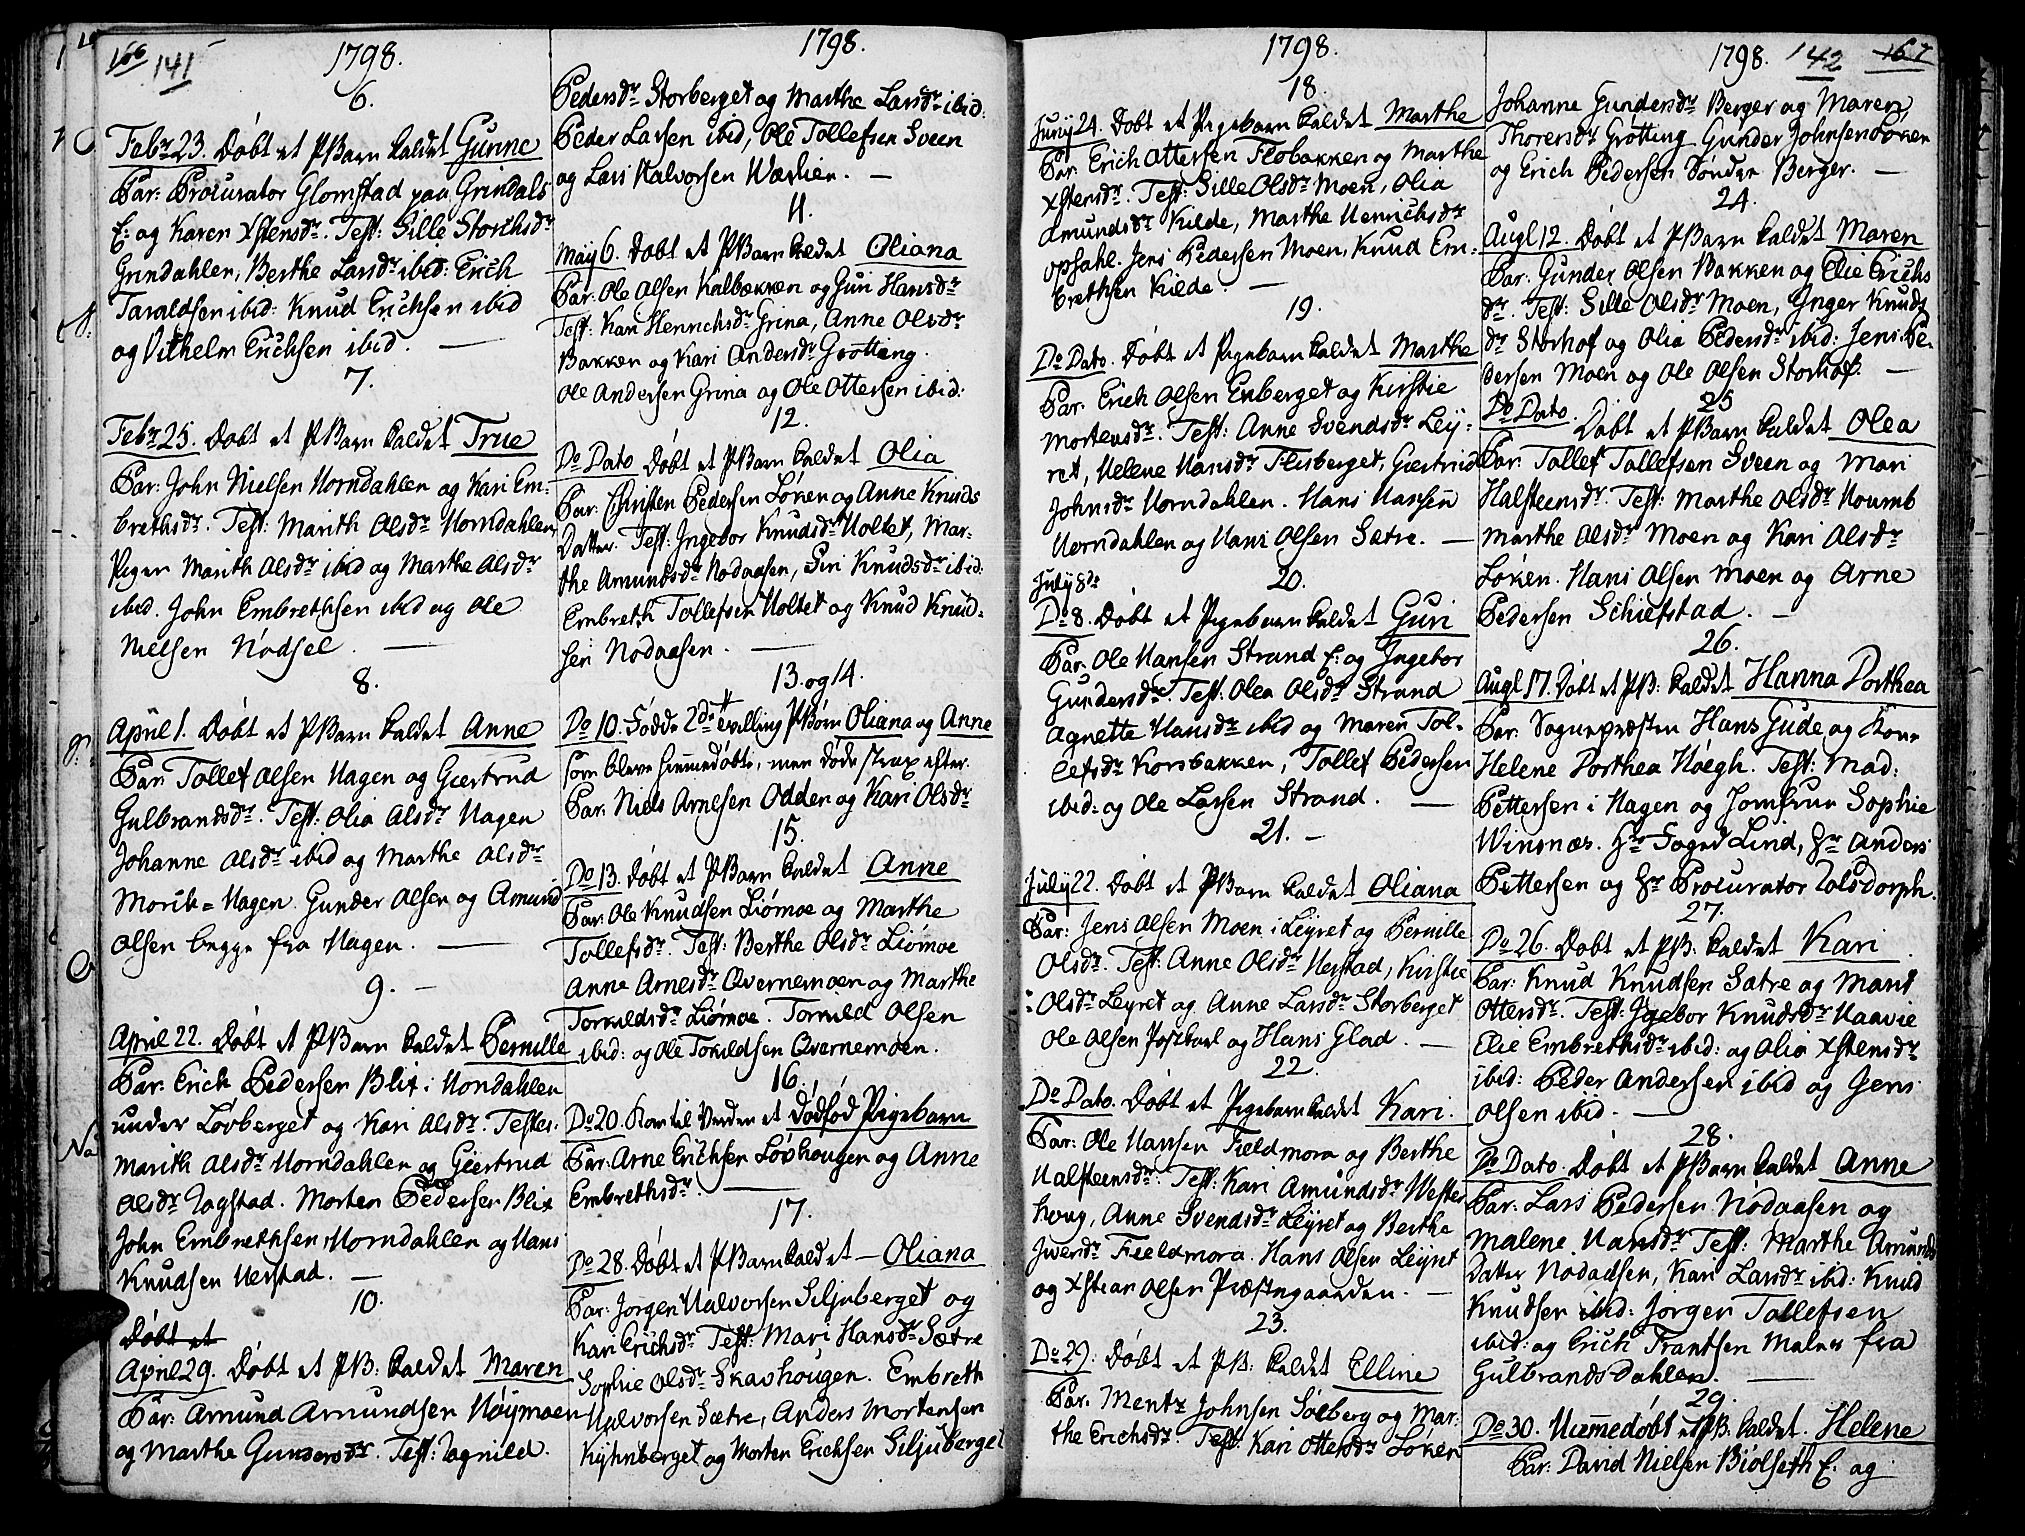 166 141
1798.
6.
Febr 23. Döbt et PBarn kaldet Gunne
Par: Procurator Glomstad paa Grindals
E: og Karen Xstensdr. Test: Sille Storchsdr
Grindahlen, Berthe Larsdr ibid: Erich
Taraldsen ibid: Knud Erichsen ibid
og Vilhelm Erichsen ibid.
7.
Febr 25. Döbt et PBarn kaldet True
Par: John Nielsen Horndahlen og Kari Em-
brethsdr. Test: Marith Olsdr Horndahlen
Pigen Marith Olsdr ibid og Marthe Olsdr
ibid. John Embrethsen ibid og Ole
Nielsen Nödsel.
8.
April 1. Döbt et PBarn kaldet Anne
Par: Tollef Olsen Hagen og Giertrud
Gulbrandsdr. Test: Olia Olsdr Hagen
Johanne Olsdr ibid og Marthe Olsdr
Morih=Hagen. Gunder Olsen og Amund
Olsen begge fra Hagen.
9.
April 22. Döbt et PBarn kaldet Pernille
Par: Erich Pedersen Blix i Hondahlen
under Lövberget og Kari Olsdr. Testes:
Marith Olsdr Horndahlen og Giertrud
Olsdr Jogstad. Morten Pedersen Blix
John Embrethsen Horndahlen og Hans
Knudsen Herstad.
10.
Döbt et
April 29. Döbt et PB: kaldet Maren
Par: Amund Amundsen Höymoen
og Marthe Gundersdr. Test: Ragnild
1798.
Pedersdr Storberget og Marthe Larsdr ibid:
Peder Larsen ibid, Ole Tollefsen Sveen
og Lars Halvorsen Wærlien.
11.
May 6. Döbt et PBarn kaldet Oliana
Par: Ole Olsen Kalbækken og Guri Hansdr
Test: Kari Henrichsdr Grina, Anne Olsdr
Bakken og Kari Andersdr Grötting.
Ole Andersen Grina og Ole Ottersen ibid:
12.
Do Dato Döbt et PBarn kaldet Olia
Par: Christen Pedersen Löken og Anne Knuds
Datter. Test: Ingebor Knudsdr Holtet, Mar-
the Amundsdr Nodaasen, Siri Knudsdr ibid:
Embreth Tollefsen Holtet og Knud Knud-
sen Nodaasen.
13. og 14.
Do 10. Födde 2de tvilling PBörn Oliana og Anne
som bleve hiemmedöbte, men döde strax efter.
Par: Niels Arnesen Odden og Kari Olsdr
15.
Do 13. Döbt et PBarn kaldet Anne
Par: Ole Knudsen Liömoe og Marthe
Tollefsdr. Test: Berthe Olsdr Liömoe
Anne Arnesdr Qvernemoen og Marthe
Torkildsdr Liömoe. Torkild Olsen
ibid: og Ole Tokildsen Qvernemoen.
16.
Do 20. Kom til Verden et dödfød Pigebarn
Par: Arne Erichsen Lövhougen og Anne
Embrethsdr.
17.
Do 28. Döbt et PBarn kaldet Oliana
Par: Jörgen Halvorsen Siljuberget og
Kari Erichsdr Test: Mari Hansdr Sætre
Sophie Olsdr Skavhougen. Embreth
Halvorsen Sætre, Anders Mortensen
Kyhnberget og Morten Erichsen Siljuberget
1798.
18.
Juny 24. Döbt et Pigebarn kaldet Marthe
Par: Erich Ottersen Flobakken og Marthe
Xstensdr. Test: Sille Olsdr Moen, Olia
Amundsdr Kilde, Marthe Henrichsdr
Opsahl. Jens Pedersen Moen, Knud Em-
brethsen Kilde.
19.
Do Dato. Döbt et Pigebarn kaldet Marthe
Par: Erich Olsen Enberget og Kirstie
Mortensdr. Test: Anne Svendsdr Ley-
ret, Helene Hansdr Flisberget, Giertrud
Johnsdr Horndahlen. Hans Hansen
Horndahlen og Hans Olsen Sætre.
20.
July 8de
Do 8. Döbt et Pigebarn kaldet Guri
Par. Ole Hansen Strand E: og Ingebor
Gundersdr. Test: Olea Olsdr Strand
Agnette Hansdr ibid og Maren Tol-
lefsdr Korsbakken, Tollef Pedersen
ibid: og Ole Larsen Strand.
21.
July 22. Döbt et PBarn kaldet Oliana
Par: Jens Olsen Moen i Leyret og Pernille
Olsdr. Test: Anne Olsdr Herstad, Kirstie
Olsdr Leyret og Anne Larsdr Storberget
Ole Olsen Postkarl og Hans Glad.
22.
Do Dato. Döbt et Pigebarn kaldet Kari.
Par: Ole Hansen Fieldmora og Berthe
Halsteensdr. Test: Kari Amundsdr Wester
houg, Anne Svendsdr Leyret og Berthe
Iversdr Fieldmora. Hans Olsen Leyret
og Xstian Olsen Præstegaarden.
23.
Do 29. Döbt et PB: kaldet Elline
Par. Mentz Johnsen Solberg og Mar-
the Erichsdr. Test: Kari Ottersdr Löken
1798. 142 167
Johanne Gundersdr Berger og Maren
Thoresdr Grötting Gunder Johnsen Löken
og Erich Pedersen Sönder Berger.
24.
Augl 12. Döbt et PBarn kaldet Maren
Par: Gunder Olsen Bakken og Elie Erichs
dr. Test: Sille Olsdr Moen, Ynger Knuds
dr Storhof og Olia Pedersdr ibid: Jens Pe-
dersen Moen og Ole Olsen Storhof.
25
Do Dato. Döbt et PBarn kaldet Olea
Par: Tollef Tollefsen Sveen og Mari
Halsteensdr. Test: Marthe Olsdr Houmb
Marthe Olsdr Moen og Kari Olsdr
Löken. Hans Olsen Moen og Arne
Pedersen Schiefstad.
26.
Augl 17. Döbt et PB: kaldet Hanna Dorthea
Par. Sognepræsten Hans Gude og Kone
Helene Dorthea Höegh. Test: Mad:
Pettersen i Hagen og Jomfrue Sophie
Winsnæs. Hr Foged Lind, Hr Anders
Pettersen og Hr Procurator Colsdorph.
27.
Do 26. Döbt et PB: kaldet Kari
Par: Knud Knudsen Sætre og Marit
Ottersdr. Test: Igebor Knudsdr Haavie
Elie Embrethsdr ibid: og Olia Xstensdr
ibid: Peder Andersen ibid og Jens
Olsen ibid.
28.
Do Dato. Döbt et PBarn kaldet Anne
Par: Lars Pedersen Nodaasen og
Malene Hansdr Test: Marthe Amunds
Datter Nodaasen, Kari Larsdr ibid: Knud
Knudsen ibid: Jörgen Tollefsen
ibid: og Erich Frantsen Malnes fra
Gulbrandsdahlen.
29.
Do 30. Hiemmedöbt et PB. kaldet Helene
Par: David Nielsen Biölseth E. og